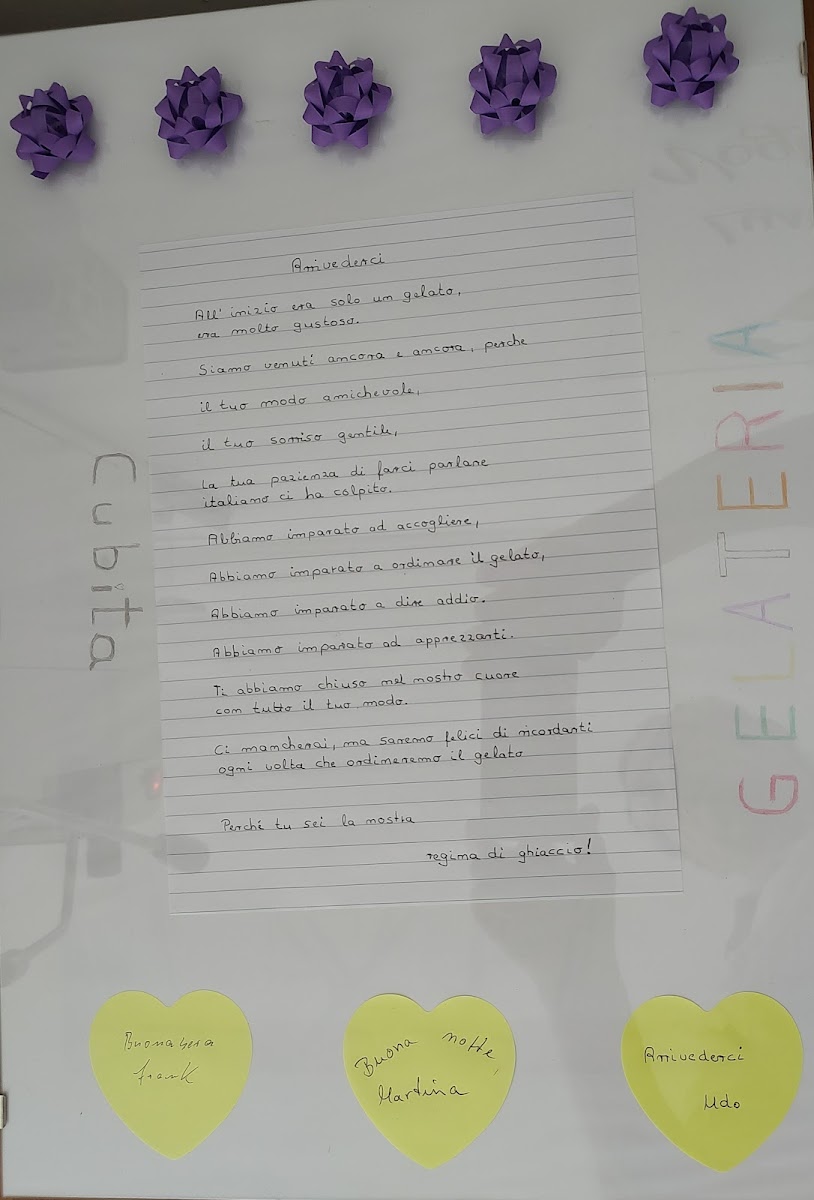 Arrivederci
All' inizio era solo un gelato,
era molto gustoso.
Siamo venuti ancora e ancora, perche
il tuo modo amichevole,
il tuo sorriso gentile,
La tua pazienza di farci parlare
italiano ci ha colpito.
Abbiamo imparato ad accogliere,
Abbiamo imparato a ordinare il gelato,
Abbiamo imparato a dire addio.
Abbiamo imparato ad apprezzarti.
Ti abbiamo chiuso nel nostro cuore
con tutto il tuo modo.
Ci mancherai, ma saremo felici di ricordarti
ogni volta che ordineremo il gelato
Perché tu sei la nostra
regina di ghiaccio!
Cubita
GELATERIA
Buonasera
frank
Buona notte,
Martina
Arrivederci
Udo